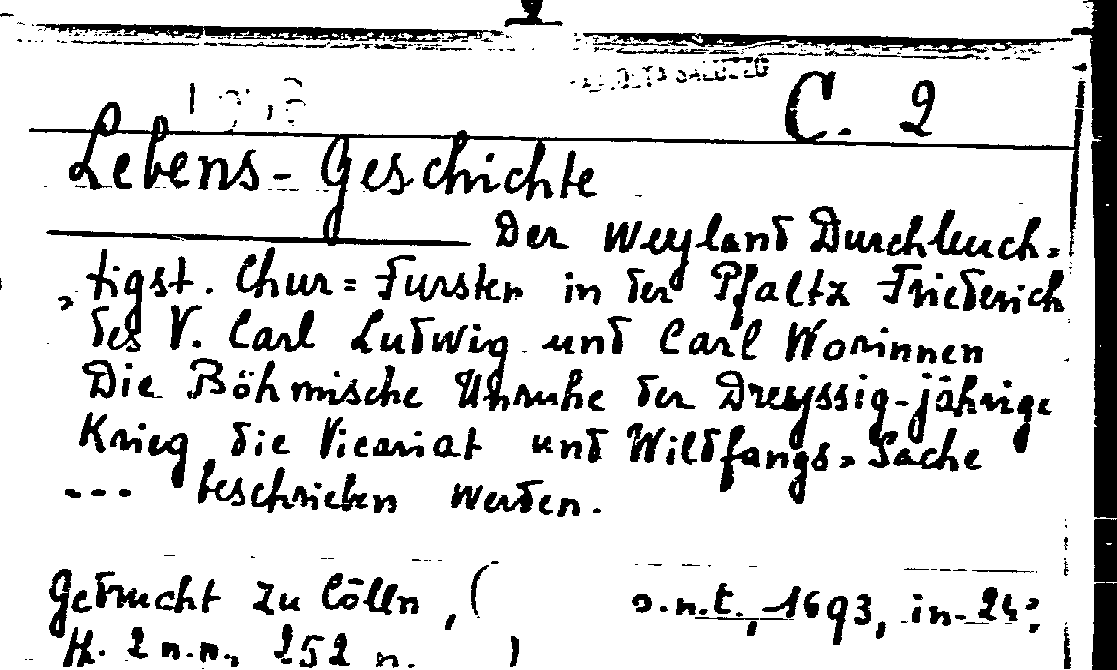 C. 2
Lebens-Geschichte
Der Weyland Durchleuch=
=tigst. Chur=Fursten in der Pfaltz Friederich
des V. Carl Ludwig und Carl Worinnen
Die Böhmische Unruhe der Dreyssig-jährige
Krieg die Vicariat und Wildfangs=Sache
--- beschrieben werden.
Gedruckt zu Cölln, ( s.n.t., 1693, in-24:
ff. 2 n.n., 252 n. )